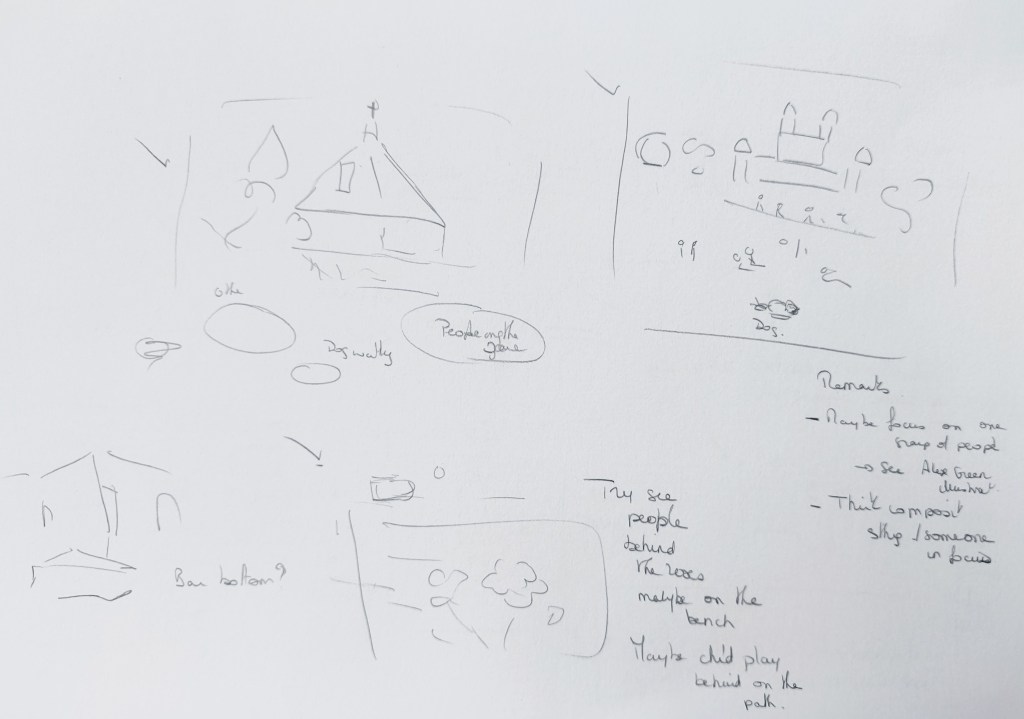 othe
Dog
People on the
Dog.
Remarks
- Maybe focus on one
group of people
→ See Alex Green
- Think composit
sthg / someone
in focus
Try see
people
behind
the
maybe on the
bench
Maybe child play
behind on the
path.
bottom?